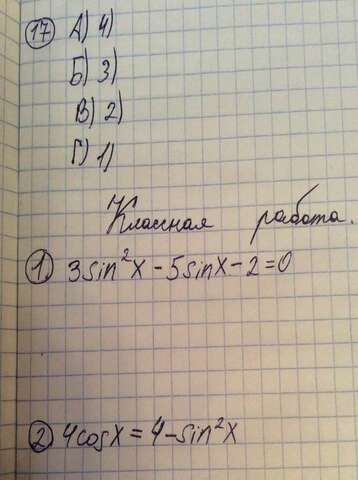 17 А) 4)
Б) 3)
В) 2)
Г) 1)
Классная работа.
1) 3sin²x - 5sinx - 2 = 0
2) 4cosx = 4 - sin²x